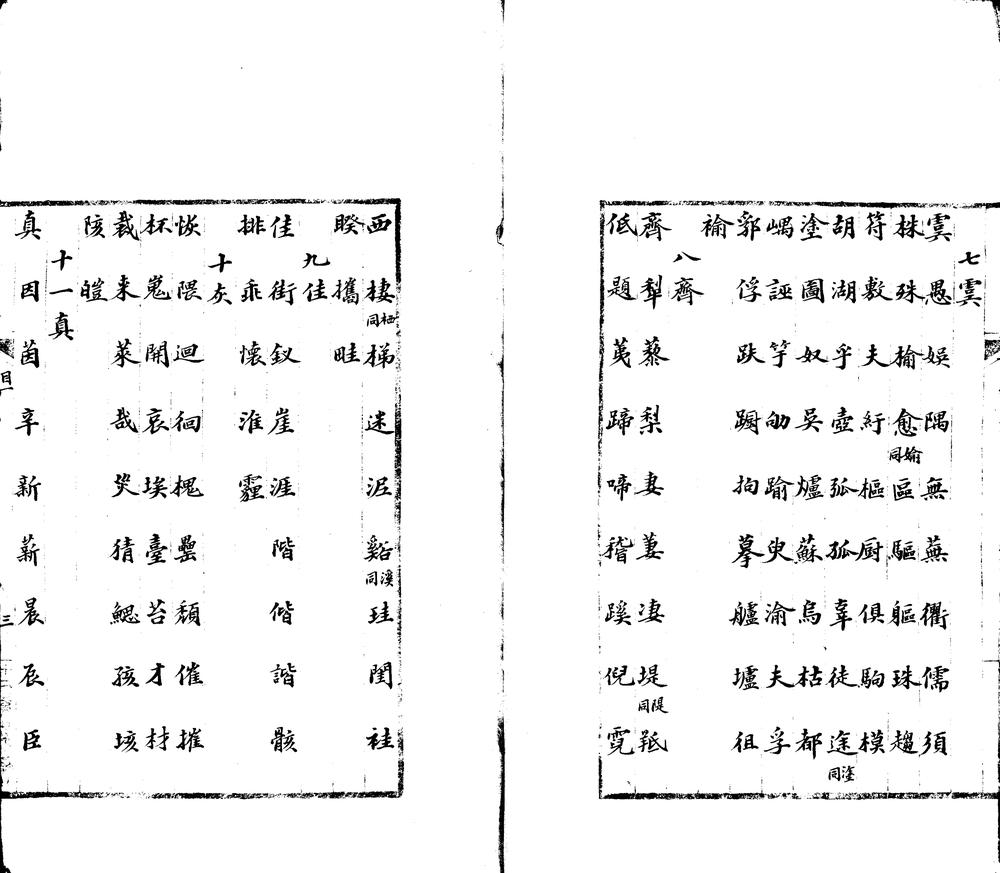 七虞
虞愚娛隅無蕪衢儒須
株殊榆愈同媮區驅軀珠趨
符敷夫紆樞厨俱駒模
胡湖乎壺弧孤辜徒途同塗
塗圖奴吳爐蘇烏枯都
嵎誣竽劬踰臾渝夫孚
郛俘趺躕拘摹艫壚徂
褕
八齊
齊犁藜梨妻萋凄堤同隄羝
低題荑蹄啼稽蹊倪霓
西棲同栖梯迷泥谿同溪珪閨袿
睽攜畦
九佳
佳街釵崖涯階偕諧骸
排乖懷淮霾
十灰
恢隈迴徊槐罍頹催摧
杯嵬開哀埃臺苔才材
裁来萊哉災猜鰓孩垓
陔皚
十一真
真因茵辛新薪晨辰臣
目
三